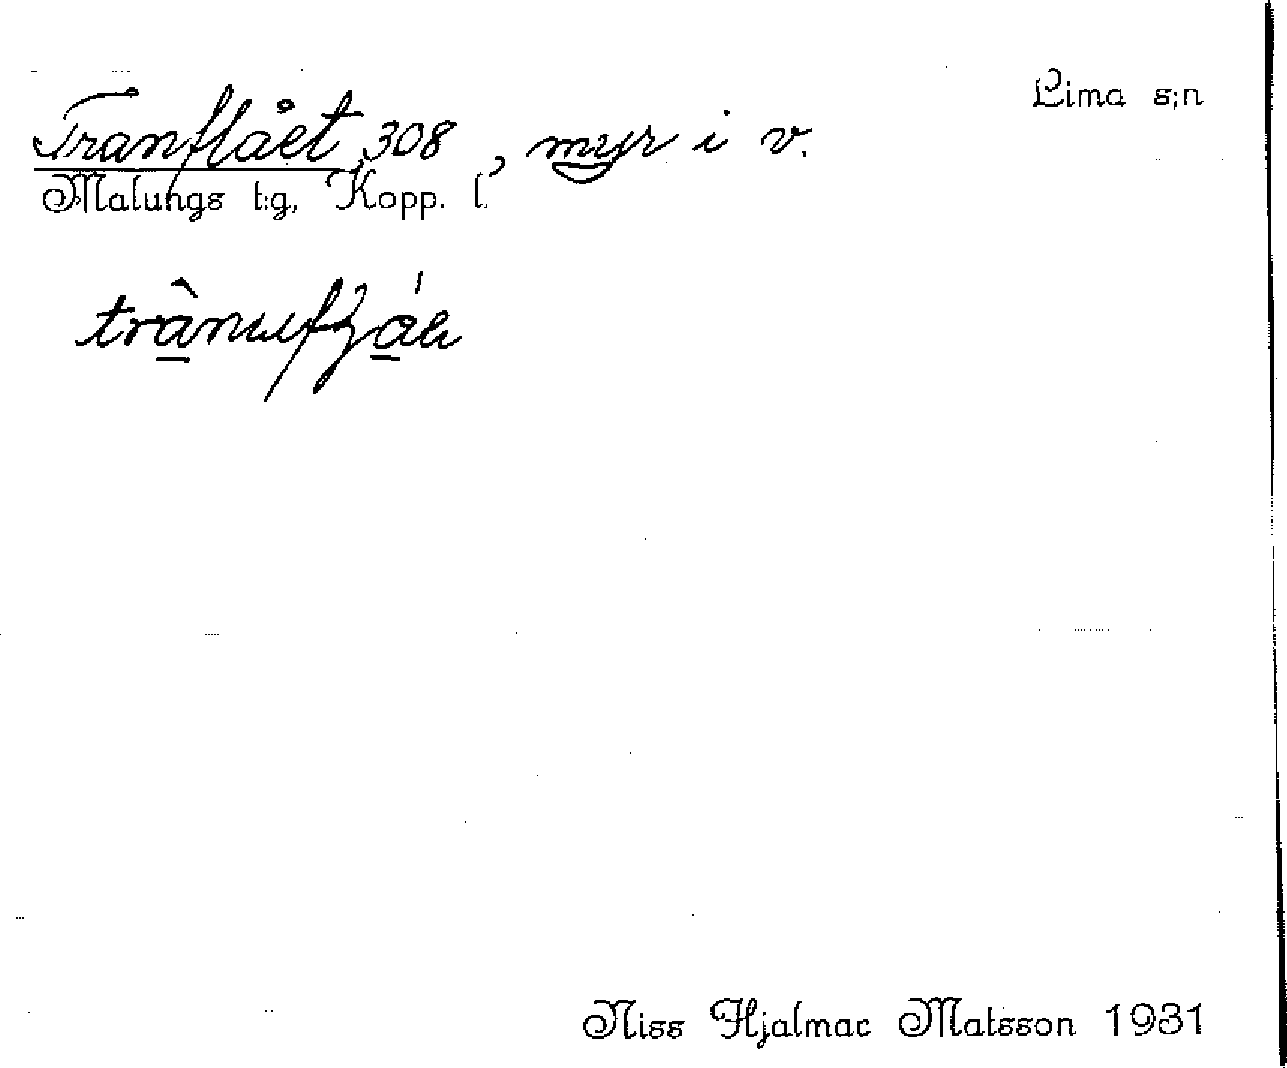 Lima s:n
Tranflået 308, myr i v.
Malungs t:g, Kopp. l.
Niss Hjalmar Matsson 1931